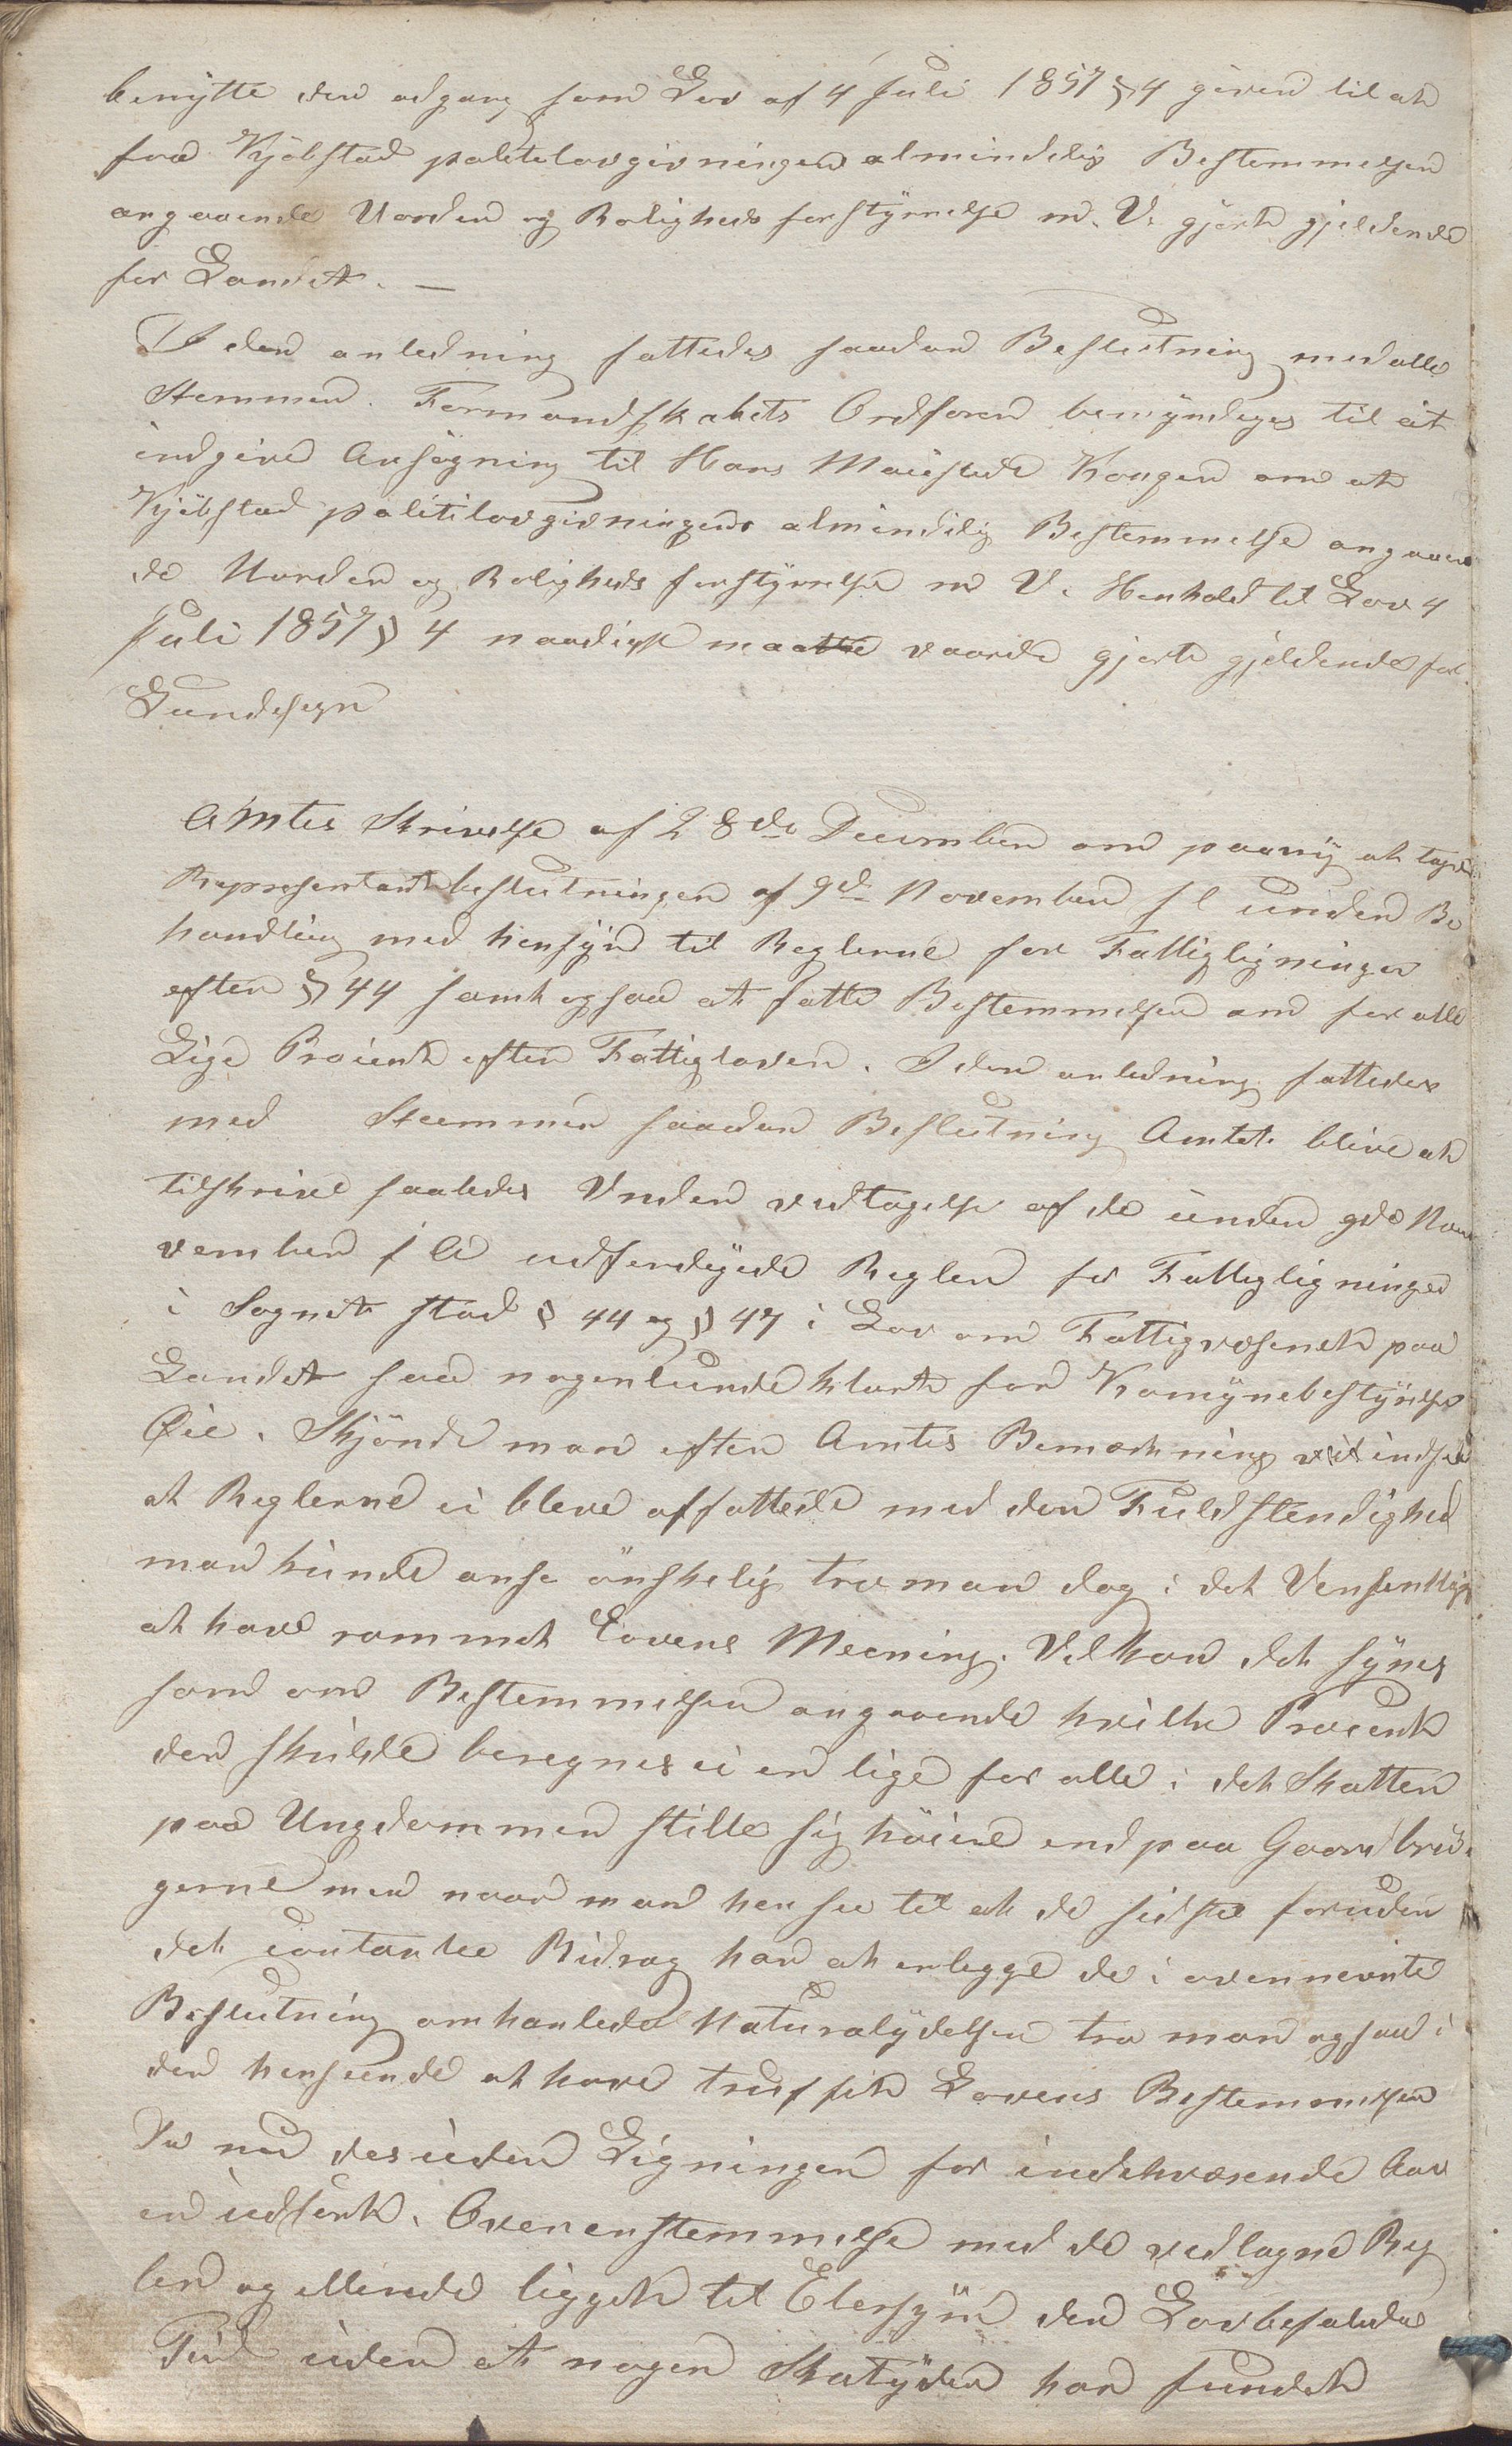 benytte den adgang som Lov af 4 Juli 1857 § 4 giver til at
faa Kjöbstad politilovgivningens almindelig Bestemmelser
angaaende Uorden og Roligheds forstyrrelse m. V. gjort gjeldende
for Landet. —
I den anledning fattedes saadan Beslutning med alle
Stemmer. Formandskabets Ordförer bemyndeges til at
indgive Ansögning til Hans Maiestedt Kongen om at
Kjöbstad politilovgivningens almindelig Bestemmelse angaaen
de Uorden og Roligheds forstyrrelse m V. Henhold til Lov 4
Juli 1857 § 4 naadigst maatte vaarde gjort gjeldende for
Lundesogn
Amtes Skrivelse af 28de December om paany at tage
Representantbeslutningen af 9de November f l under Be
handling med hensyn til Reglerne for Fattigligningen
efter § 44 samt ogsaa at fatte Bestemmelsen om for alle
Lige Procent efter Fattigloven. I den anledning fattedes
med Stemmer saadan Beslutning Amtet blive at
tilskrive saaledes Under vedtagelse af de under 9de No
vember f A udferdigede Regler for Fattigligningen
i Sognet stod § 44 og § 47 i Lov om Fattigvæsenet paa
Landet saa nogenlunde klart for Komynebestyrelse
Øie. Skjönde man efter Amtes Bemerkning vil indsee
at Reglerne ei bleve affattede med den Fuldstendighed
man kunde anse önskelig tro man dog i det Vensentlig
at have rammet Lovens Meening. Vel kan det synes
som om Bestemmelsen angaaende hvilke Procent
der skulde beregnes ei er lige for alle i det Skatten
paa Ungdommen stille sig höiere end paa Gaardbru-
gerne men naar man hen see til at de sidste foruden
det contante Bidrag har at erlegge de i ovennevnte
Beslutning omhanlede Naturalydelser tro man ogsaa i
den henseende at have truffet Lovens Bestemmelser
Da nu desuden Ligningen for indehværende Aar
er udfert i Overenstemmelse med de vedtagne Reg
ler og allerede ligget til Eftersyn den Lovbefalede
Tid uden at nogen Skatyder har fundet